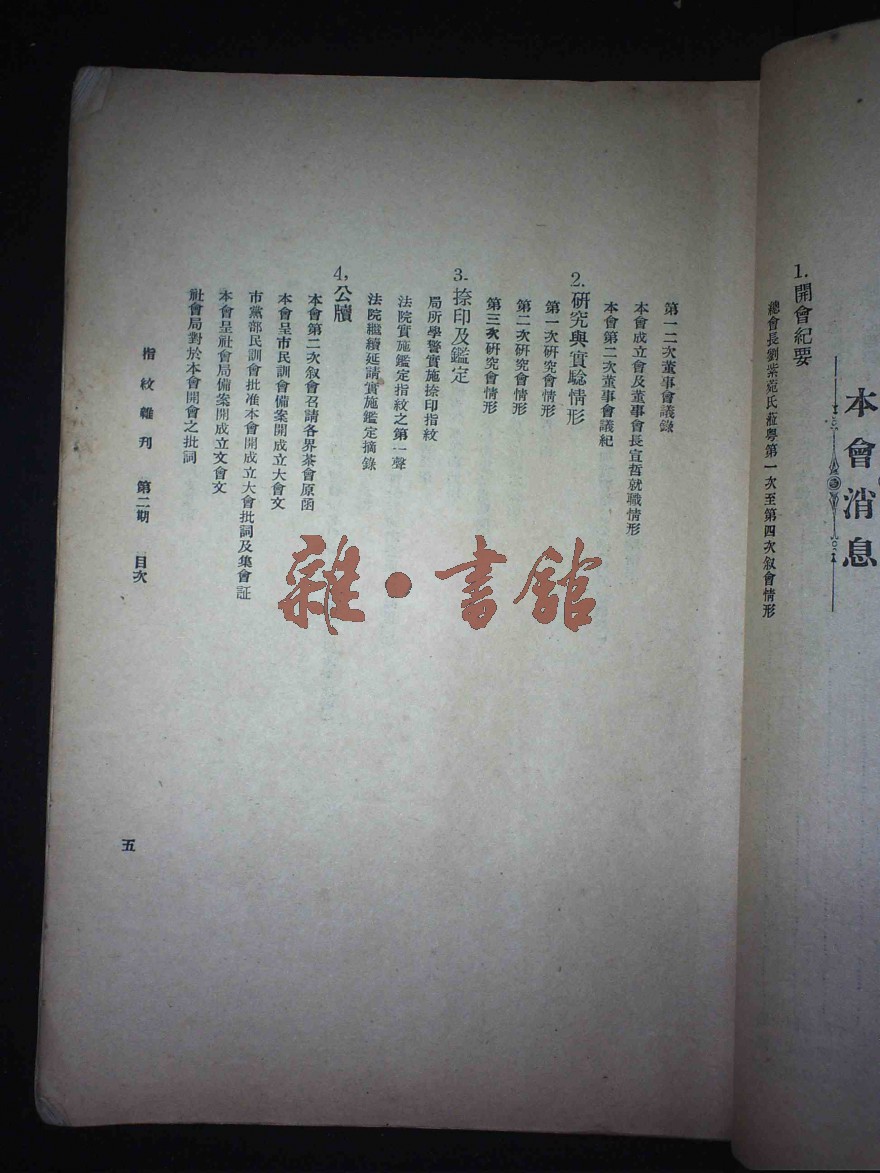 本會消息
1.開會紀要
總會長劉紫菀氏蒞粵第一次至第四次叙會情形
第一二次董事會議錄
本會成立會及董事會長宣誓就職情形
本會第二次董事會議紀
2.研究與實騐情形
第一次研究會情形
第二次研究會情形
第三次研究會情形
3.捺印及鑑定
局所學警實施捺印指紋
法院實施鑑定指紋之第一聲
法院繼續延請實施鑑定摘錄
4,公牘
本會第二次叙會召請各界茶會原函
本會呈市民訓會備案開成立大會文
市黨部民訓會批准本會開成立大會批詞及集會証
本會呈社會局備案開成立文會文
社會局對於本會開會之批詞
指紋雜刊 第二期 目次
五
雜·書館